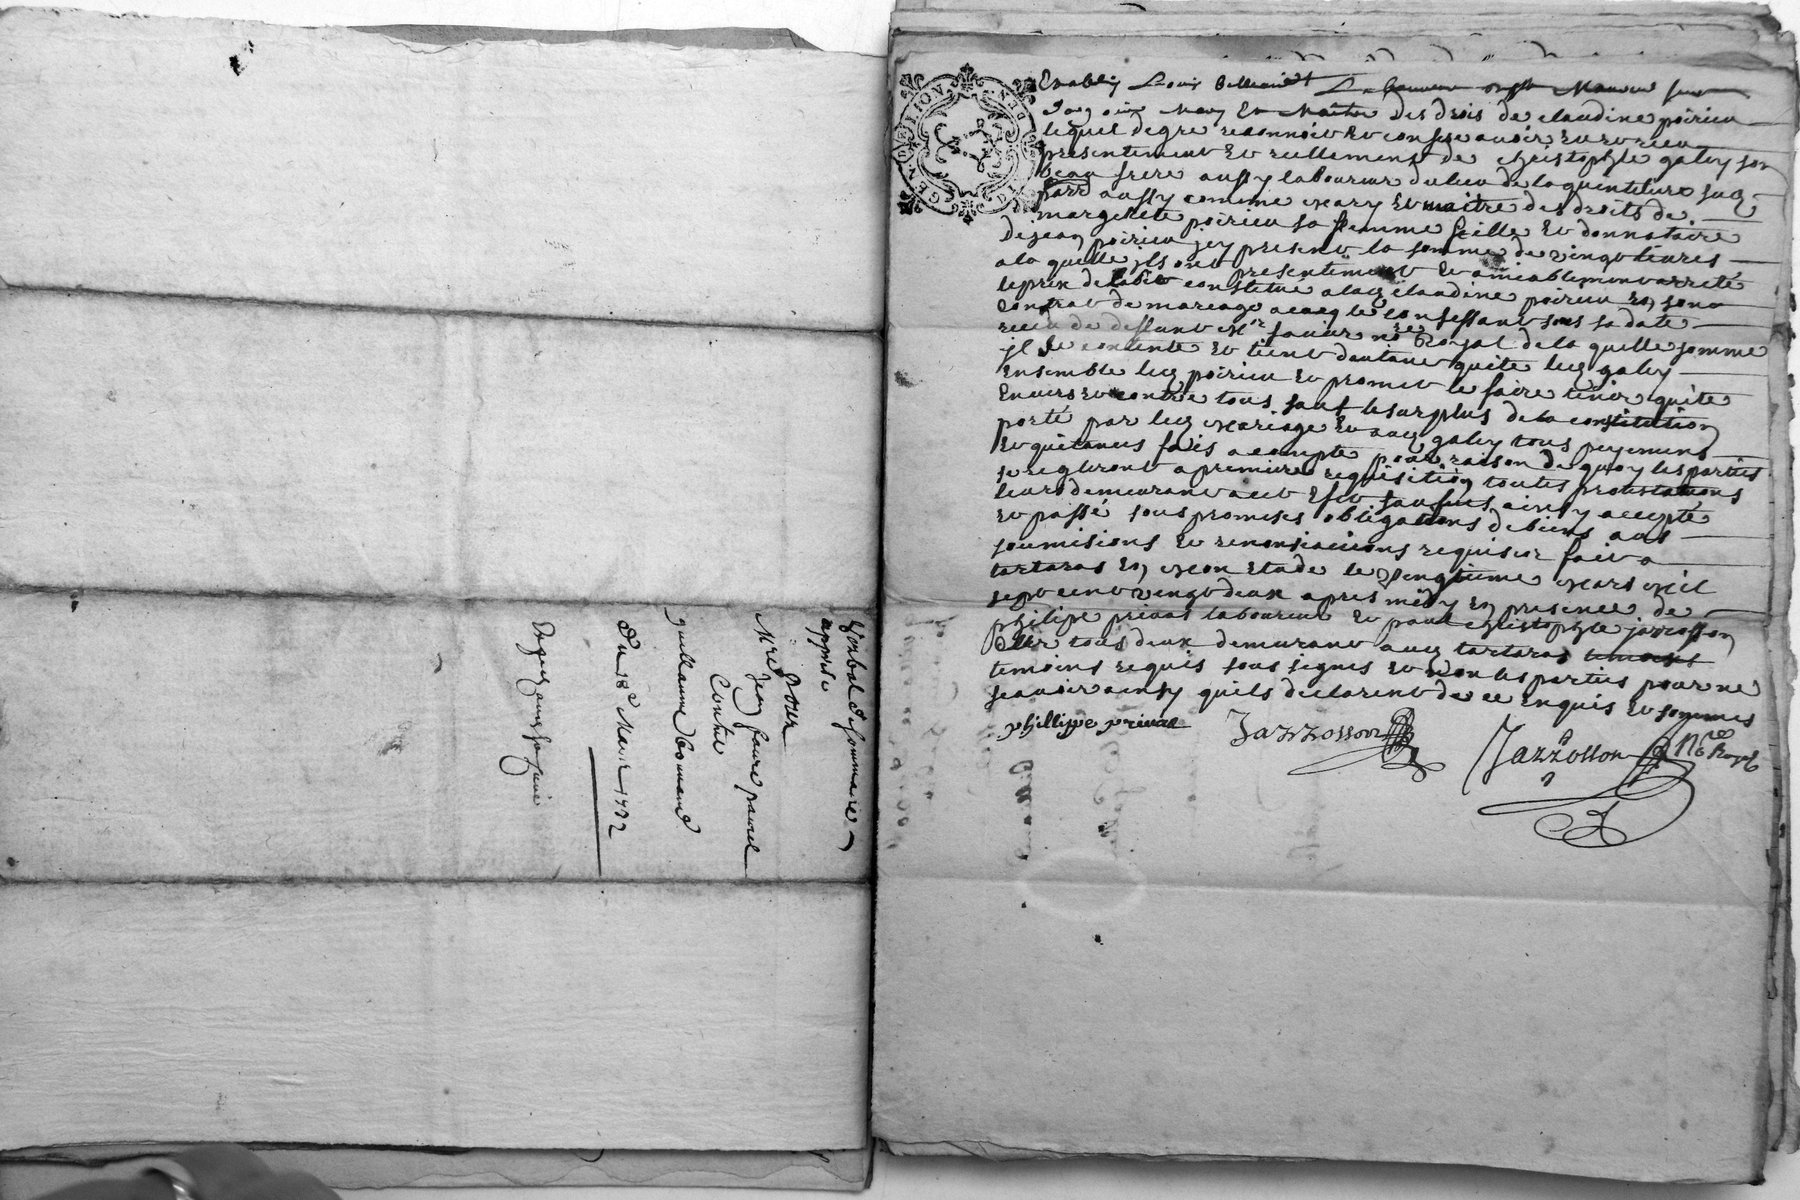 Verbal d'sommaire
apprise
Pour
Mre Jean faure
Contre
guillaume
Du 18e Mars 1772
GENERATION
Establiy Louis
mary et maitre des drois de claudine poirieu
lequel de gre reconnoit et confesse avoir eu et receu
presentement et reellement de christophle galey son
beau frere aussy laboureur du lieu de la
parr aussy comme mary et maitre des droits de
margerite poirieu sa femme fille et donnataire
de jean poirieu jcy present la somme de vingt livres
a la quelle jls ont presentement et amiablement arrette
le prix de constitue a lad claudine poirieu en sont
contrat de mariage avecq le confessant sous sa date
receu de deffunt Mr no Royal de la quelle somme
jl se contente et tient d'autant quite led galey
ensemble led poirieu et promet le faire tenir quite
envers et contre tous sauf le surplus de la constitution
porté par led mariage et aud galey tous peyemens
et quitances fais a compte pour raison de quoy les parties
se regleront a premiere requisition toutes protestations
leurs demeurant a cet efet saufues ainsy accepté
et passé sous promises obligations de biens aus
soumisions et renonsiations requises fait a
tartaras en mon etude le vingtieme mars mil
sept cent vingt deux apres midy en presence de
philipe prival laboureur et paul christophle jazzosson
clerc tous deux demeurant aud tartaras
temoins requis sous signes et non les parties pour ne
scavoir ainsy quils declarent de ce enquis et sommes
phillippe prival
Jazzosson
Jazzosson No Royal